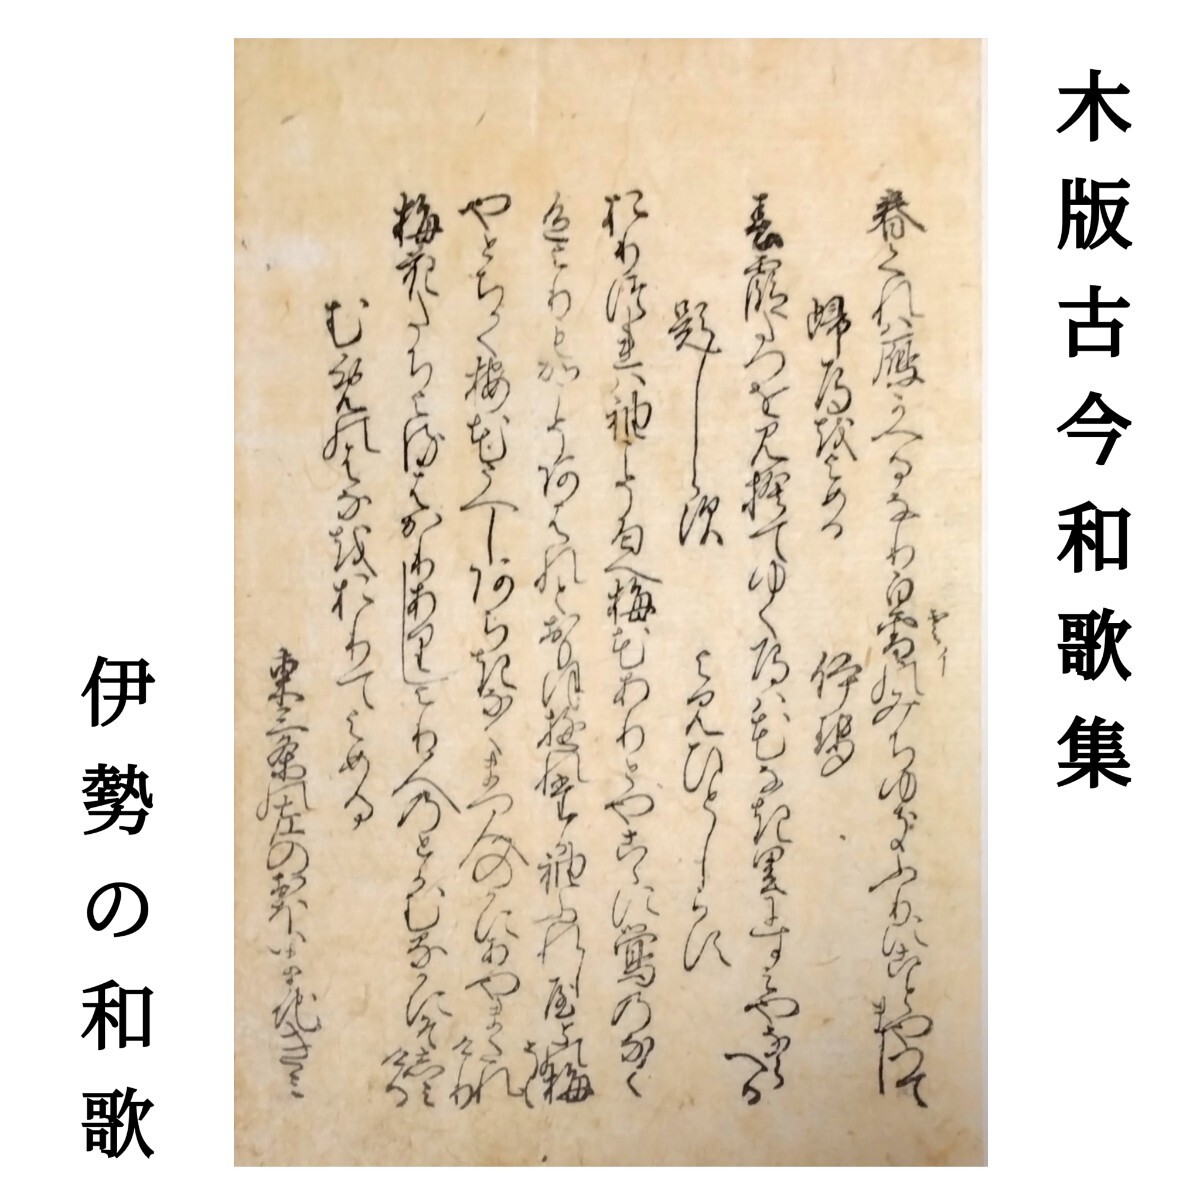 木版古今和歌集
春くれは雁かへるなり白雪のみちゆきふりにことやつてまし
雲イ
帰雁をよめる 伊勢
春霞たつを見捨てゆく雁は花なき里にすみやならへる
題しらす よみひとしらす
おりつれは袖こそ匂へ梅花ありとやここに鶯のなく
色よりもかこそあはれとおもほゆれ誰袖ふれし屋との梅そも
やとちかく梅花うへしあちきなくまつ人のかにあやまたれけり
梅花たちよるはかりありしより人のとかむるかにそしみける
むめの花をおりてよめる
東三条の左のおほいまうちきみ
伊勢の和歌